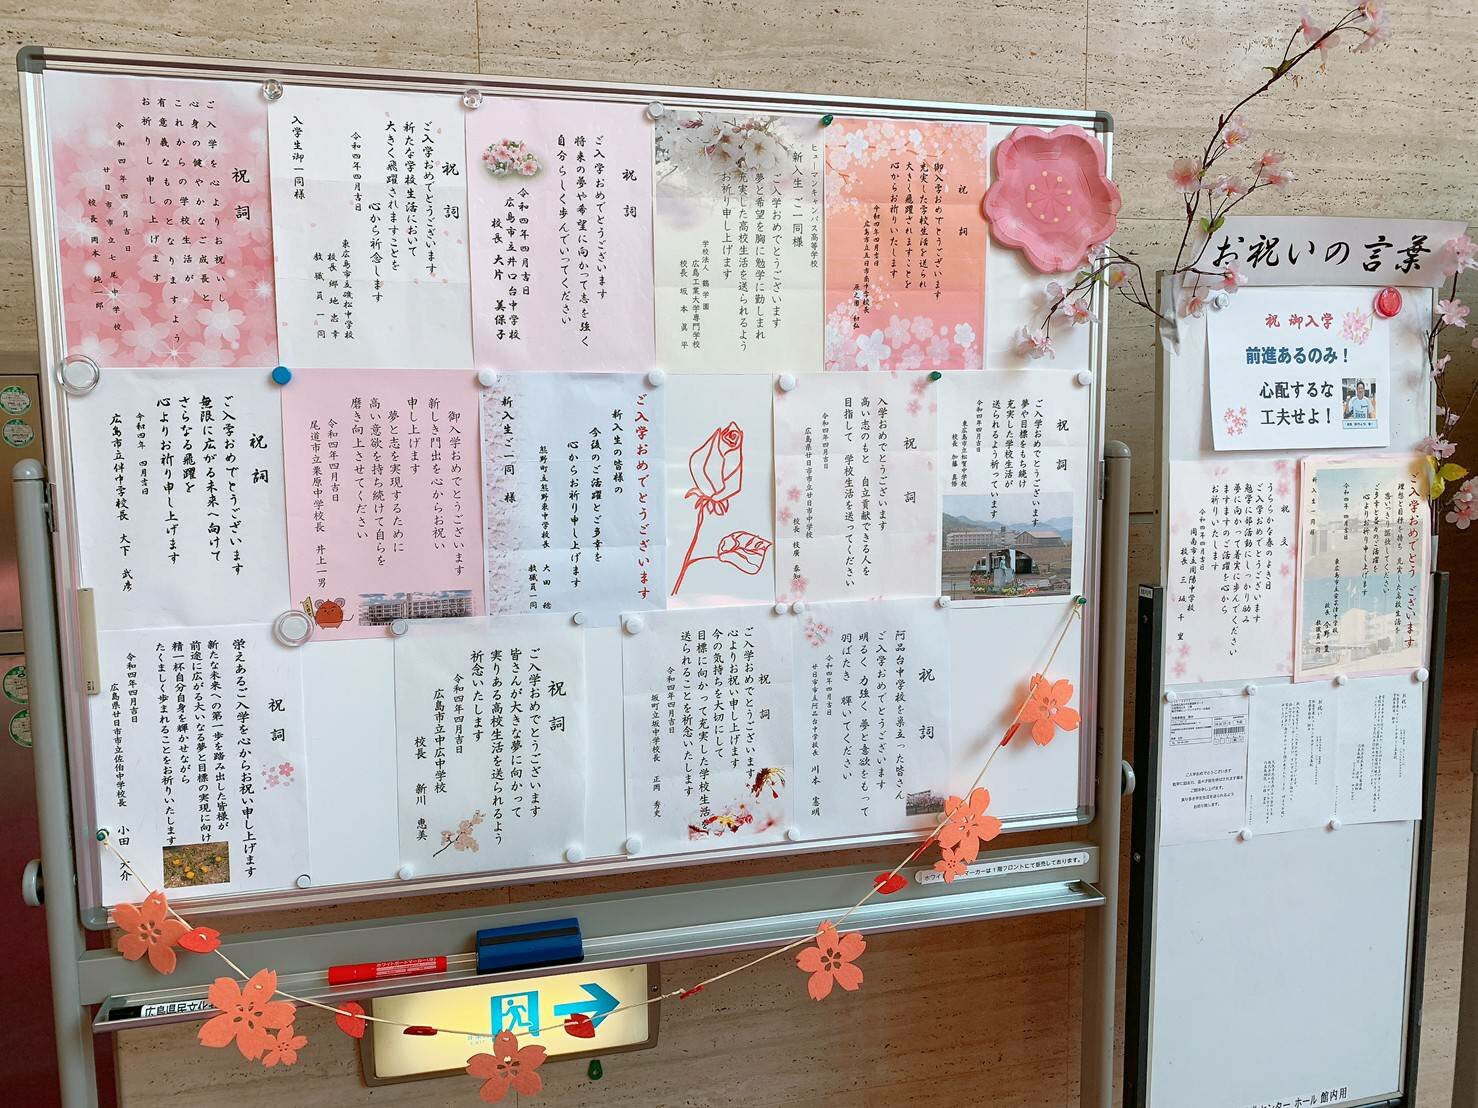 祝詞
ご入学を心よりお祝いし
心身の健やかなご成長と
これからの学校生活が
有意義なものとなりますよう
お祈り申し上げます
令和四年四月吉日
廿日市市立七尾中学校
校長 岡本 純一郎
祝詞
ご入学おめでとうございます
新たな学校生活において
大きく飛躍されますことを
心から祈念します
令和四年四月吉日
東広島市立磯松中学校
校長 郷地 忠幸
教職員一同
入学生御一同様
祝詞
ご入学おめでとうございます
将来の夢や希望に向かって志を強く
自分らしく歩んでいってください
令和四年四月吉日
広島市立井口台中学校
校長 大片 美保子
ヒューマンキャンパス高等学校
新入生 ご一同様
ご入学おめでとうございます
夢と希望を胸に勉学に勤しまれ
充実した高校生活を送られるよう
お祈り申し上げます
学校法人 鶴学園
広島工業大学専門学校
校長 坂本 眞平
祝詞
御入学おめでとうございます
充実した学校生活を送られ
大きく飛躍されますことを
心からお祈りいたします
令和四年四月吉日
広島市立五日市南中学校長
祝詞
ご入学おめでとうございます
無限に広がる未来へ向けて
さらなる飛躍を
心よりお祈り申し上げます
令和四年 四月吉日
広島市立伴中学校長 大下 武彦
御入学おめでとうございます
新しき門出を心からお祝い
申し上げます
夢と志を実現するために
高い意欲を持ち続けて自らを
磨き向上させてください
令和四年四月吉日
尾道市立栗原中学校長 井上 一男
ご入学おめでとうございます
新入生の皆様の
今後のご活躍とご多幸を
心からお祈り申し上げます
熊野町立熊野東中学校長 大田 稔
教職員一同
新入生ご一同 様
祝詞
入学おめでとうございます
高い志のもと 自立貢献できる人を
目指して 学校生活を送ってください
令和四年四月吉日
広島県廿日市市立廿日市中学校
校長 枝廣 泰知
祝詞
ご入学おめでとうございます
夢や目標をもち続け
充実した学校生活が
送られるよう祈っています
令和四年四月吉日
東広島市立松賀中学校
校長 加藤 真悟
祝詞
栄えあるご入学を心からお祝い申し上げます
新たな未来への第一歩を踏み出した皆様が
前途に広がる大いなる夢と目標の実現に向け
精一杯自分自身を輝かせながら
たくましく歩まれることをお祈りいたします
令和四年四月吉日
広島県廿日市市立佐伯中学校長 小田 大介
祝詞
ご入学おめでとうございます
皆さんが大きな夢に向かって
実りある高校生活を送られるよう
祈念いたします
令和四年四月吉日
広島市立中広中学校
校長 新川 恵美
祝詞
ご入学おめでとうございます
心よりお祝い申し上げます
今の気持ちを大切にして
目標に向かって充実した学校生活を
送られることを祈念いたします
令和四年四月吉日
坂町立坂中学校長 正岡 秀史
祝詞
阿品台中学校を巣立った皆さん
ご入学おめでとうございます
明るく 力強く 夢と意欲をもって
羽ばたき 輝いてください
令和四年四月吉日
廿日市市立阿品台中学校長 川本 憲明
ホワイトボードマーカーは1階フロントにて販売しております。
広島県民文化
お祝いの言葉
祝 御入学
前進あるのみ！
心配するな
工夫せよ！
祝文
うららかな春のよき日
ご入学おめでとうございます
勉学に部活動にしっかり励み
夢に向かって着実に歩んでください
ますますのご活躍を心から
お祈りいたします
令和四年四月吉日
周南市立周陽中学校
校長 三坂 千里
ご入学おめでとうございます
理想と目標を持ち、充実した高校生活を
思いっきり謳歌してください
ご多幸と益々のご活躍を
心よりお祈り申し上げます
令和四年 四月吉日
東広島市立安芸津中学校
教職員一同
新入生一同様
ご入学おめでとうございます
ホール 館内用